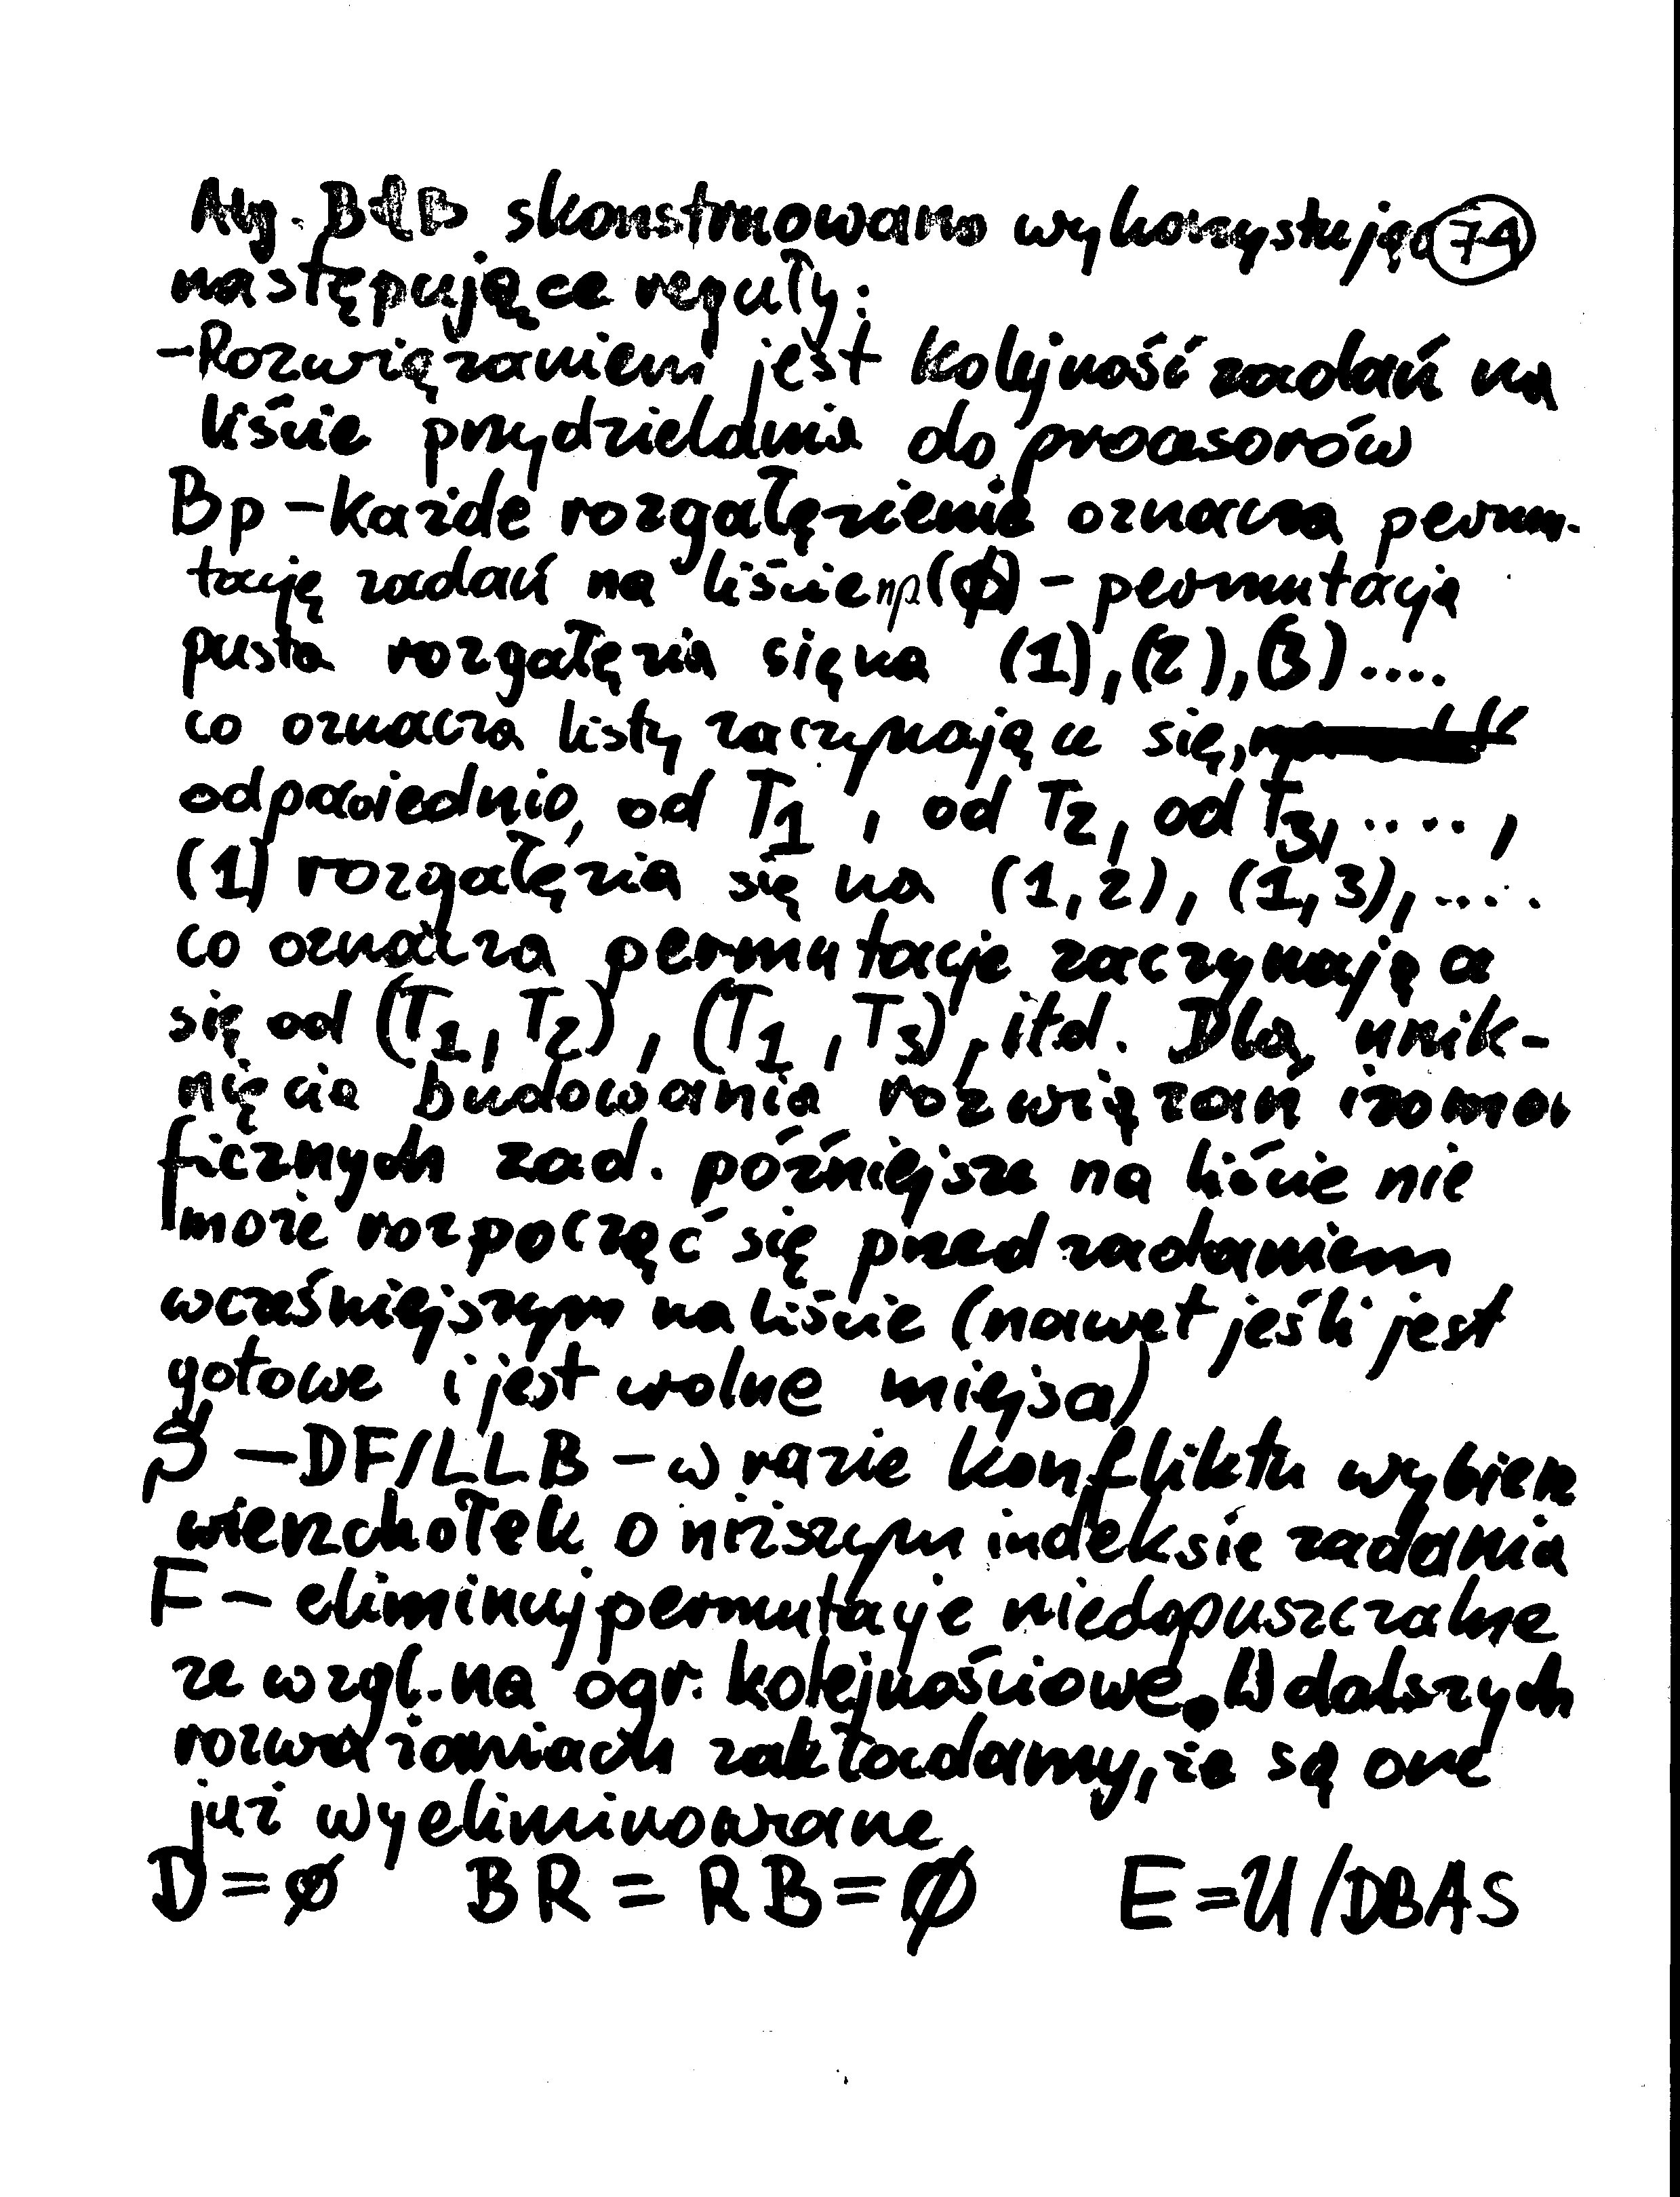 Alg. B&B skonstruowano wykorzystując 74
następujące reguły:
-Rozwiązaniem jest kolejność zadań na
liście przydzielania do procesorów
Bp - każde rozgałęzienie oznacza permu-
tację zadań na liście np (Ø) - permutacja
pusta rozgałęzia się na (1), (2), (3) ....
co oznacza listy zaczynające się,
odpowiednio, od T1, od T2, od T3, ....,
(1) rozgałęzia się na (1,2), (1,3), ....
co oznacza permutacje zaczynające
się od (T1, T2), (T1, T3), itd. Dla unik-
nięcia budowania rozwiązań izomor
ficznych zad. późniejsze na liście nie
może rozpocząć się przed zadaniem
wcześniejszym na liście (nawet jeśli jest
gotowe i jest wolne miejsce)
- DF/LLB - w razie konfliktu wybierz
wierzchołek o niższym indeksie zadania
F - eliminuj permutacje niedopuszczalne
ze wzgl. na ogr. kolejnościowe. W dalszych
rozważaniach zakładamy, że są one
już wyeliminowane
D = Ø BR = RB = Ø E = U/DBAS